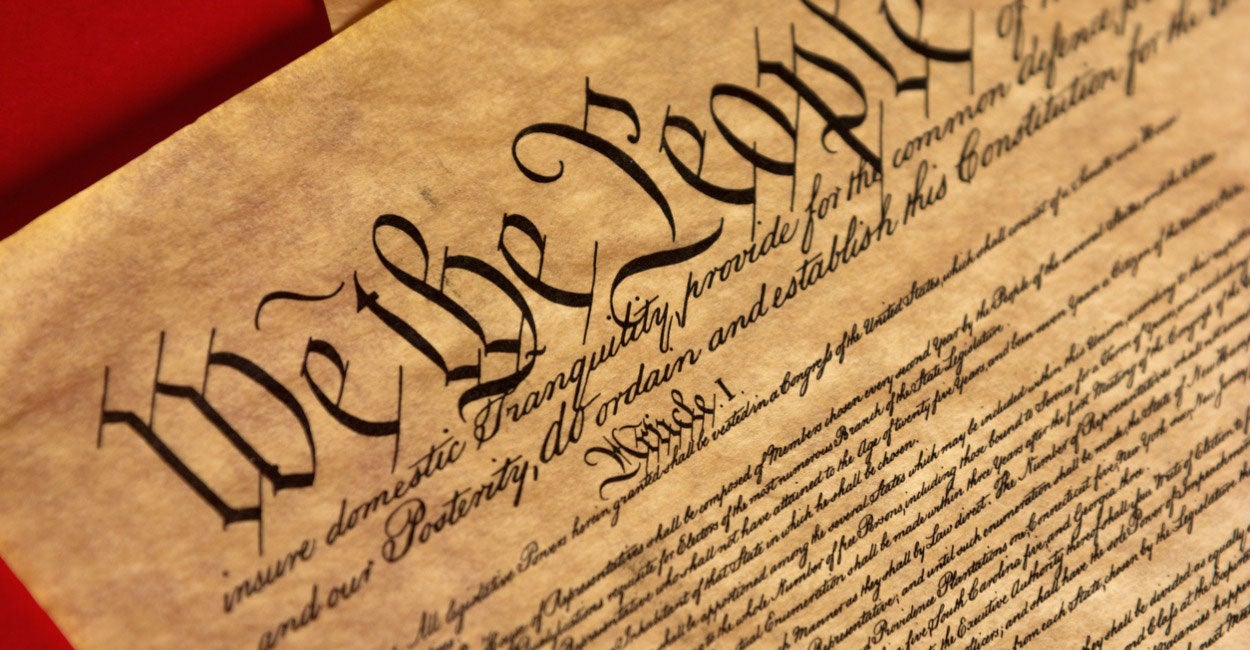 We the People
insure domestic Tranquility, provide for the common defence,
and our Posterity, do ordain and establish this Constitution for the
Article. I.
All legislative Powers herein granted shall be vested in a Congress of the United States, which shall consist of a Senate and
House of Representatives shall be composed of Members chosen every second Year by the People of the several States, and the
Qualifications requisite for Electors of the most numerous Branch of the State Legislature.
Representative who shall not have attained to the Age of twenty five Years, and been seven Years a Citizen of the United States,
Inhabitant of that State in which he shall be chosen.
shall be apportioned among the several States which may be included within this Union, according to their respective
to the whole Number of free Persons, including those bound to Service for a Term of Years, and
Enumeration shall be made within three Years after the first Meeting of the Congress of the
Manner as they shall by Law direct. The Number of Representatives shall not
Representative; and until such enumeration shall be made, the State of New
and Providence Plantations one, Connecticut five, New York six, New Jersey
five, South Carolina five, and Georgia three.
the Executive Authority thereof shall issue Writs of Election to
Officers; and shall have the sole Power of Impeachment
from each State, chosen by the Legislature
they shall be divided as equally